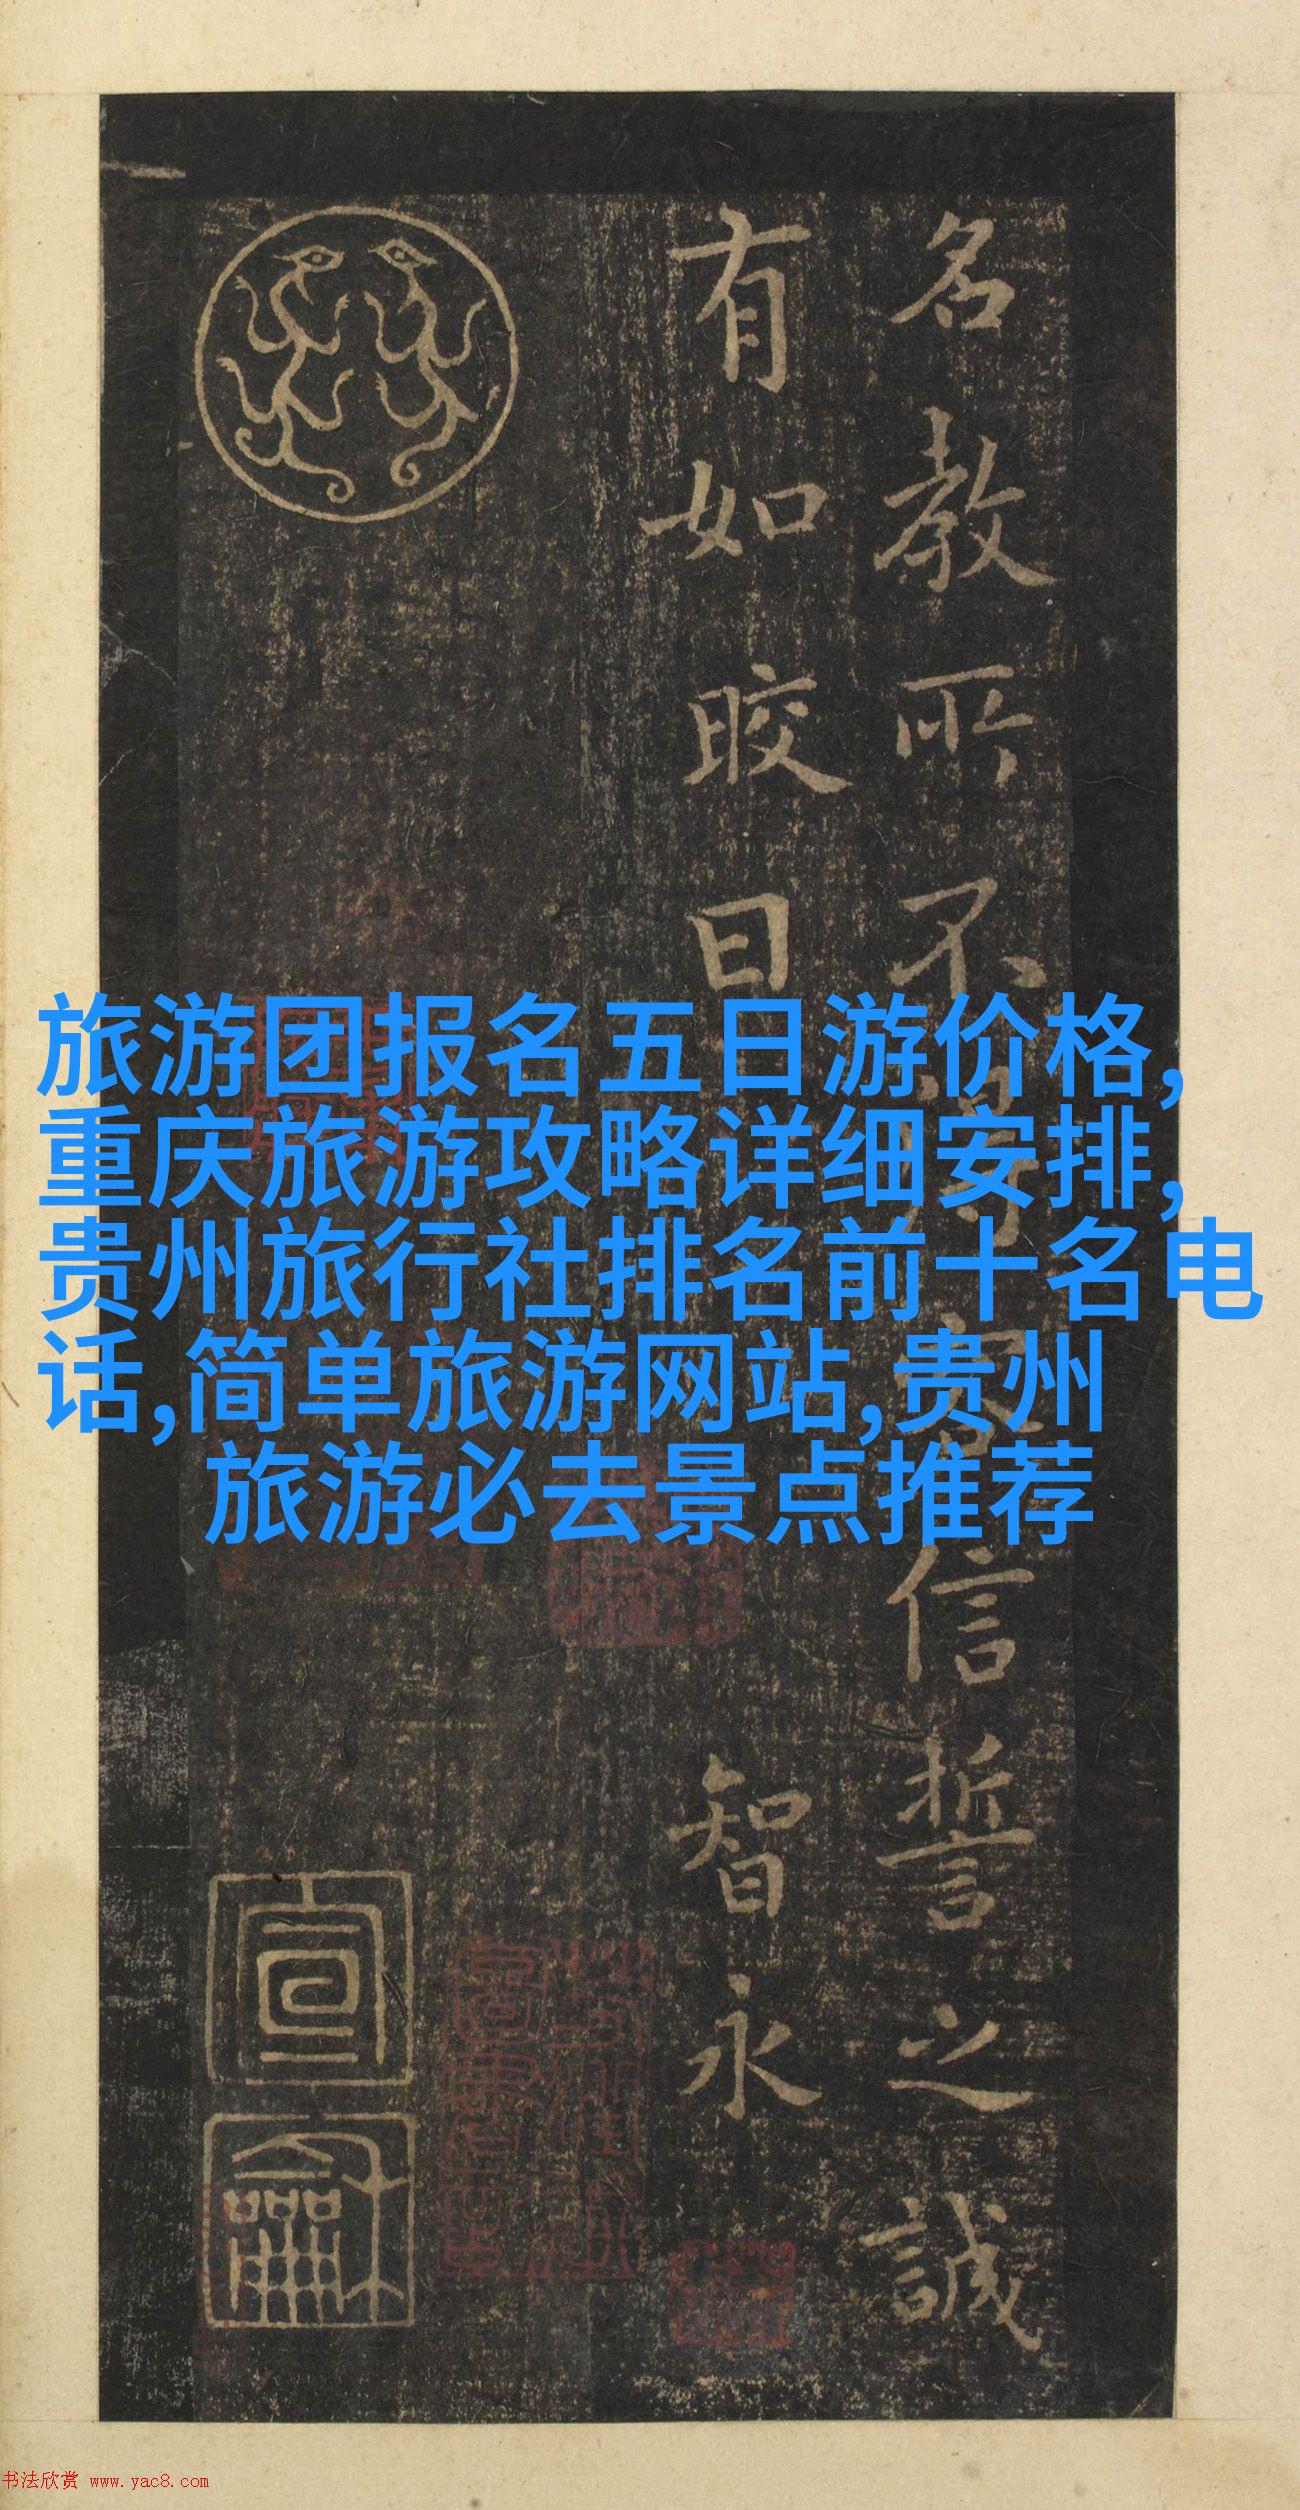 名教所不得容信誓之誠
有如晈日
智永
旅游团报名五日游价格,
重庆旅游攻略详细安排,
贵州旅行社排名前十名电
话,简单旅游网站,贵州
旅游必去景点推荐
宣
龢
书法欣赏 www.yac8.com